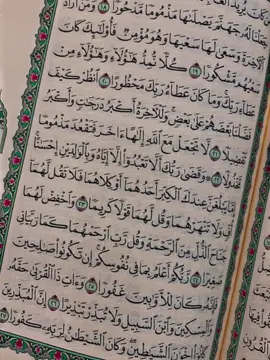 جَعَلْنَا لَهُۥ جَهَنَّمَ يَصْلَىٰهَا مَذْمُومًا مَّدْحُورًا ١٨ وَمَنْ أَرَادَ
ٱلْأَخِرَةَ وَسَعَىٰ لَهَا سَعْيَهَا وَهُوَ مُؤْمِنٌ فَأُو۟لَٰٓئِكَ كَانَ
سَعْيُهُم مَّشْكُورًا ١٩ كُلًّا نُّمِدُّ هَٰٓؤُلَآءِ وَهَٰٓؤُلَآءِ مِنْ
عَطَآءِ رَبِّكَ وَمَا كَانَ عَطَآءُ رَبِّكَ مَحْظُورًا ٢٠ ٱنظُرْ كَيْفَ
فَضَّلْنَا بَعْضَهُمْ عَلَىٰ بَعْضٍ وَلَلْأَخِرَةُ أَكْبَرُ دَرَجَٰتٍ وَأَكْبَرُ
تَفْضِيلًا ٢١ لَّا تَجْعَلْ مَعَ ٱللَّهِ إِلَٰهًا ءَاخَرَ فَتَقْعُدَ مَذْمُومًا
مَّخْذُولًا ٢٢ ۞ وَقَضَىٰ رَبُّكَ أَلَّا تَعْبُدُوٓا۟ إِلَّآ إِيَّاهُ وَبِٱلْوَٰلِدَيْنِ إِحْسَٰنًا
إِمَّا يَبْلُغَنَّ عِندَكَ ٱلْكِبَرَ أَحَدُهُمَآ أَوْ كِلَاهُمَا فَلَا تَقُل لَّهُمَآ
أُفٍّ وَلَا تَنْهَرْهُمَا وَقُل لَّهُمَا قَوْلًا كَرِيمًا ٢٣ وَٱخْفِضْ لَهُمَا
جَنَاحَ ٱلذُّلِّ مِنَ ٱلرَّحْمَةِ وَقُل رَّبِّ ٱرْحَمْهُمَا كَمَا رَبَّيَانِي
صَغِيرًا ٢٤ رَّبُّكُمْ أَعْلَمُ بِمَا فِي نُفُوسِكُمْ إِن تَكُونُوا۟ صَٰلِحِينَ
فَإِنَّهُۥ كَانَ لِلْأَوَّٰبِينَ غَفُورًا ٢٥ وَءَاتِ ذَا ٱلْقُرْبَىٰ حَقَّهُۥ
وَٱلْمِسْكِينَ وَٱبْنَ ٱلسَّبِيلِ وَلَا تُبَذِّرْ تَبْذِيرًا ٢٦ إِنَّ ٱلْمُبَذِّرِينَ
كَانُوٓا۟ إِخْوَٰنَ ٱلشَّيَٰطِينِ وَكَانَ ٱلشَّيْطَٰنُ لِرَبِّهِۦ كَفُورًا ٢٧